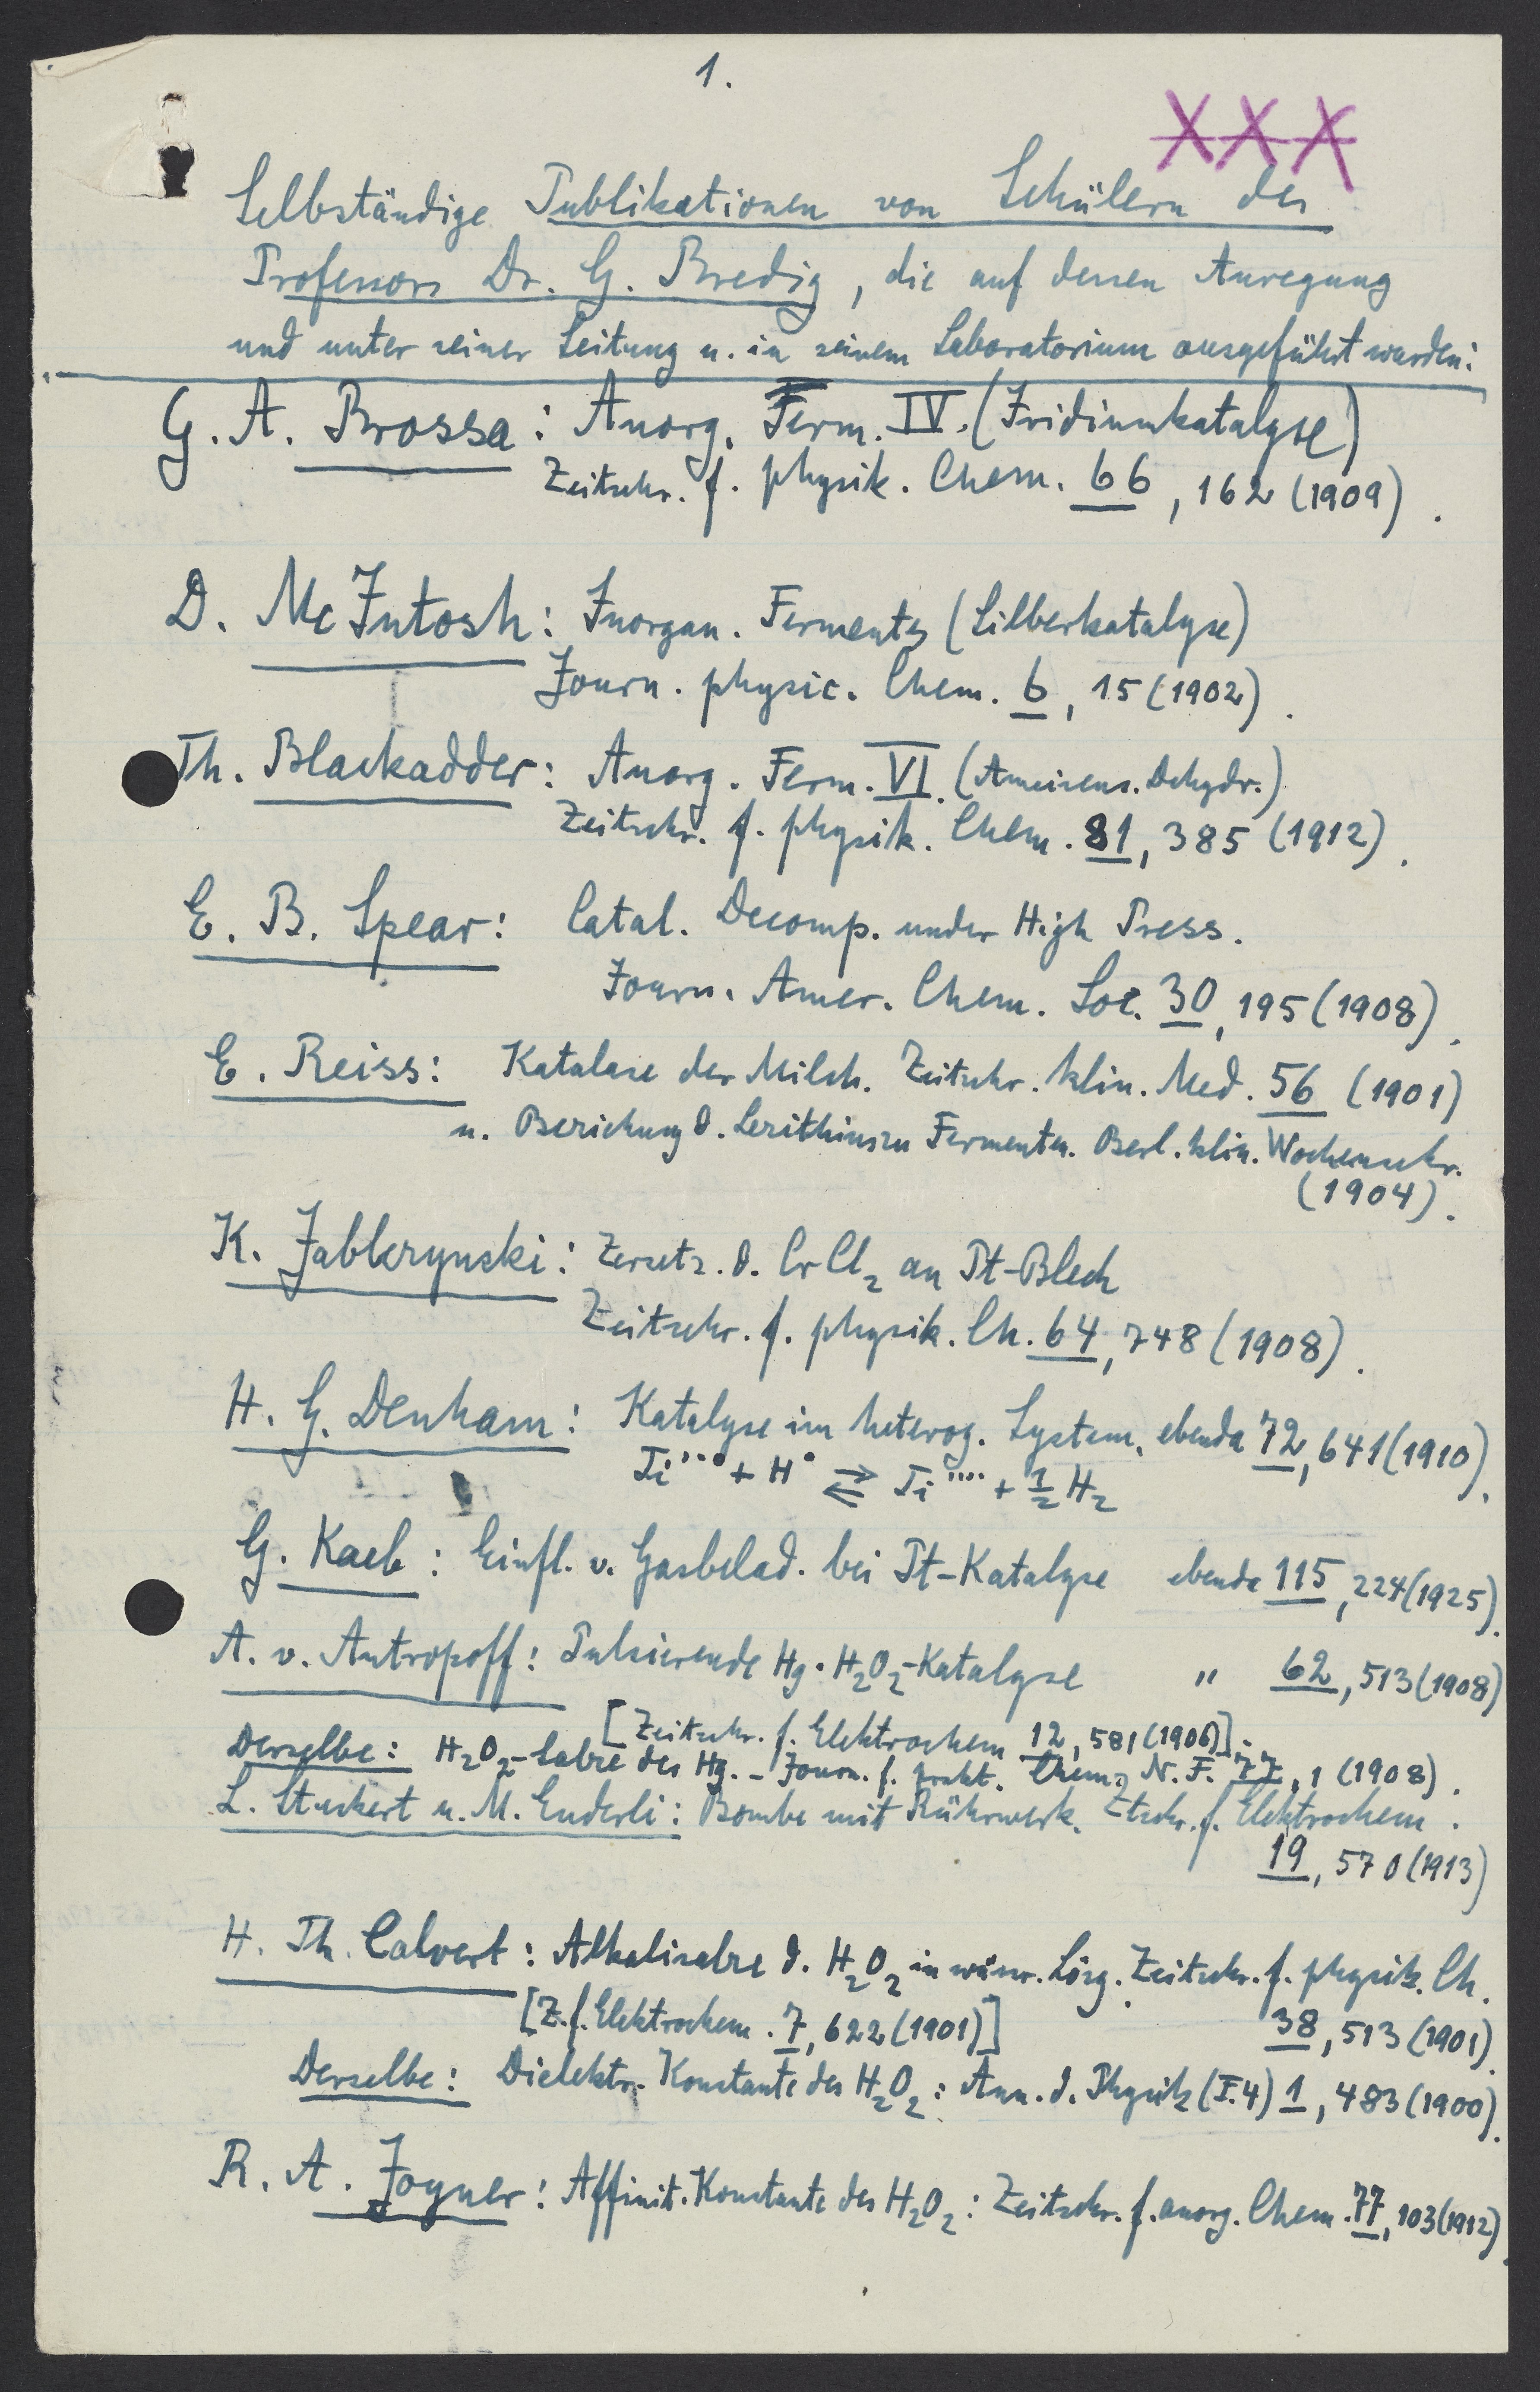 1.
XXX
Selbständige Publikationen von Schülern des
Professors Dr. G. Bredig, die auf dessen Anregung
und unter seiner Leitung u. in seinem Laboratorium ausgeführt wurden:
G. A. Brossa: Anorg. Ferm. IV. (Iridiumkatalyse)
Zeitschr. f. physik. Chem. 66, 162 (1909).
D. Mc Intosh: Inorgan. Ferments (Silberkatalyse)
Journ. physic. Chem. 6, 15 (1902).
Th. Blackadder: Anorg. Ferm. VI. (Ameisens. Dehydr.)
Zeitschr. f. physik. Chem. 81, 385 (1912).
E. B. Spear: Catal. Decomp. under High Press.
Journ. Amer. Chem. Soc. 30, 195 (1908).
E. Reiss: Katalase der Milch. Zeitschr. klin. Med. 56 (1901)
u. Beziehung d. Lezithins zu Fermenten. Berl. klin. Wochenschr.
(1904).
K. Jablczynski: Zersetz. d. CrCl₂ an Pt-Blech
Zeitschr. f. physik. Ch. 64, 748 (1908).
H. G. Denham: Katalyse im heterog. System, ebenda 72, 641 (1910).
Ti··· + H· ⇄ Ti···· + ½ H₂
G. Kaeb: Einfl. v. Gasbelad. bei Pt-Katalyse ebenda 115, 224 (1925).
A. v. Antropoff: Pulsierende Hg·H₂O₂-Katalyse " 62, 513 (1908)
[Zeitschr. f. Elektrochem 12, 581 (1906)].
Derselbe: H₂O₂-Salze des Hg. – Journ. f. prakt. Chem., N. F. 77, 1 (1908).
L. Stuckert u. M. Enderli: Bombe mit Rührwerk. Ztschr. f. Elektrochem.
19, 570 (1913)
H. Th. Calvert: Alkalisalze d. H₂O₂ in wässr. Lösg. Zeitschr. f. physik. Ch.
[Z. f. Elektrochem. 7, 622 (1901)] 38, 513 (1901).
Derselbe: Dielektr. Konstante des H₂O₂: Ann. d. Physik (F. 4) 1, 483 (1900).
R. A. Joyner: Affinit. Konstante des H₂O₂: Zeitschr. f. anorg. Chem. 77, 103 (1912).